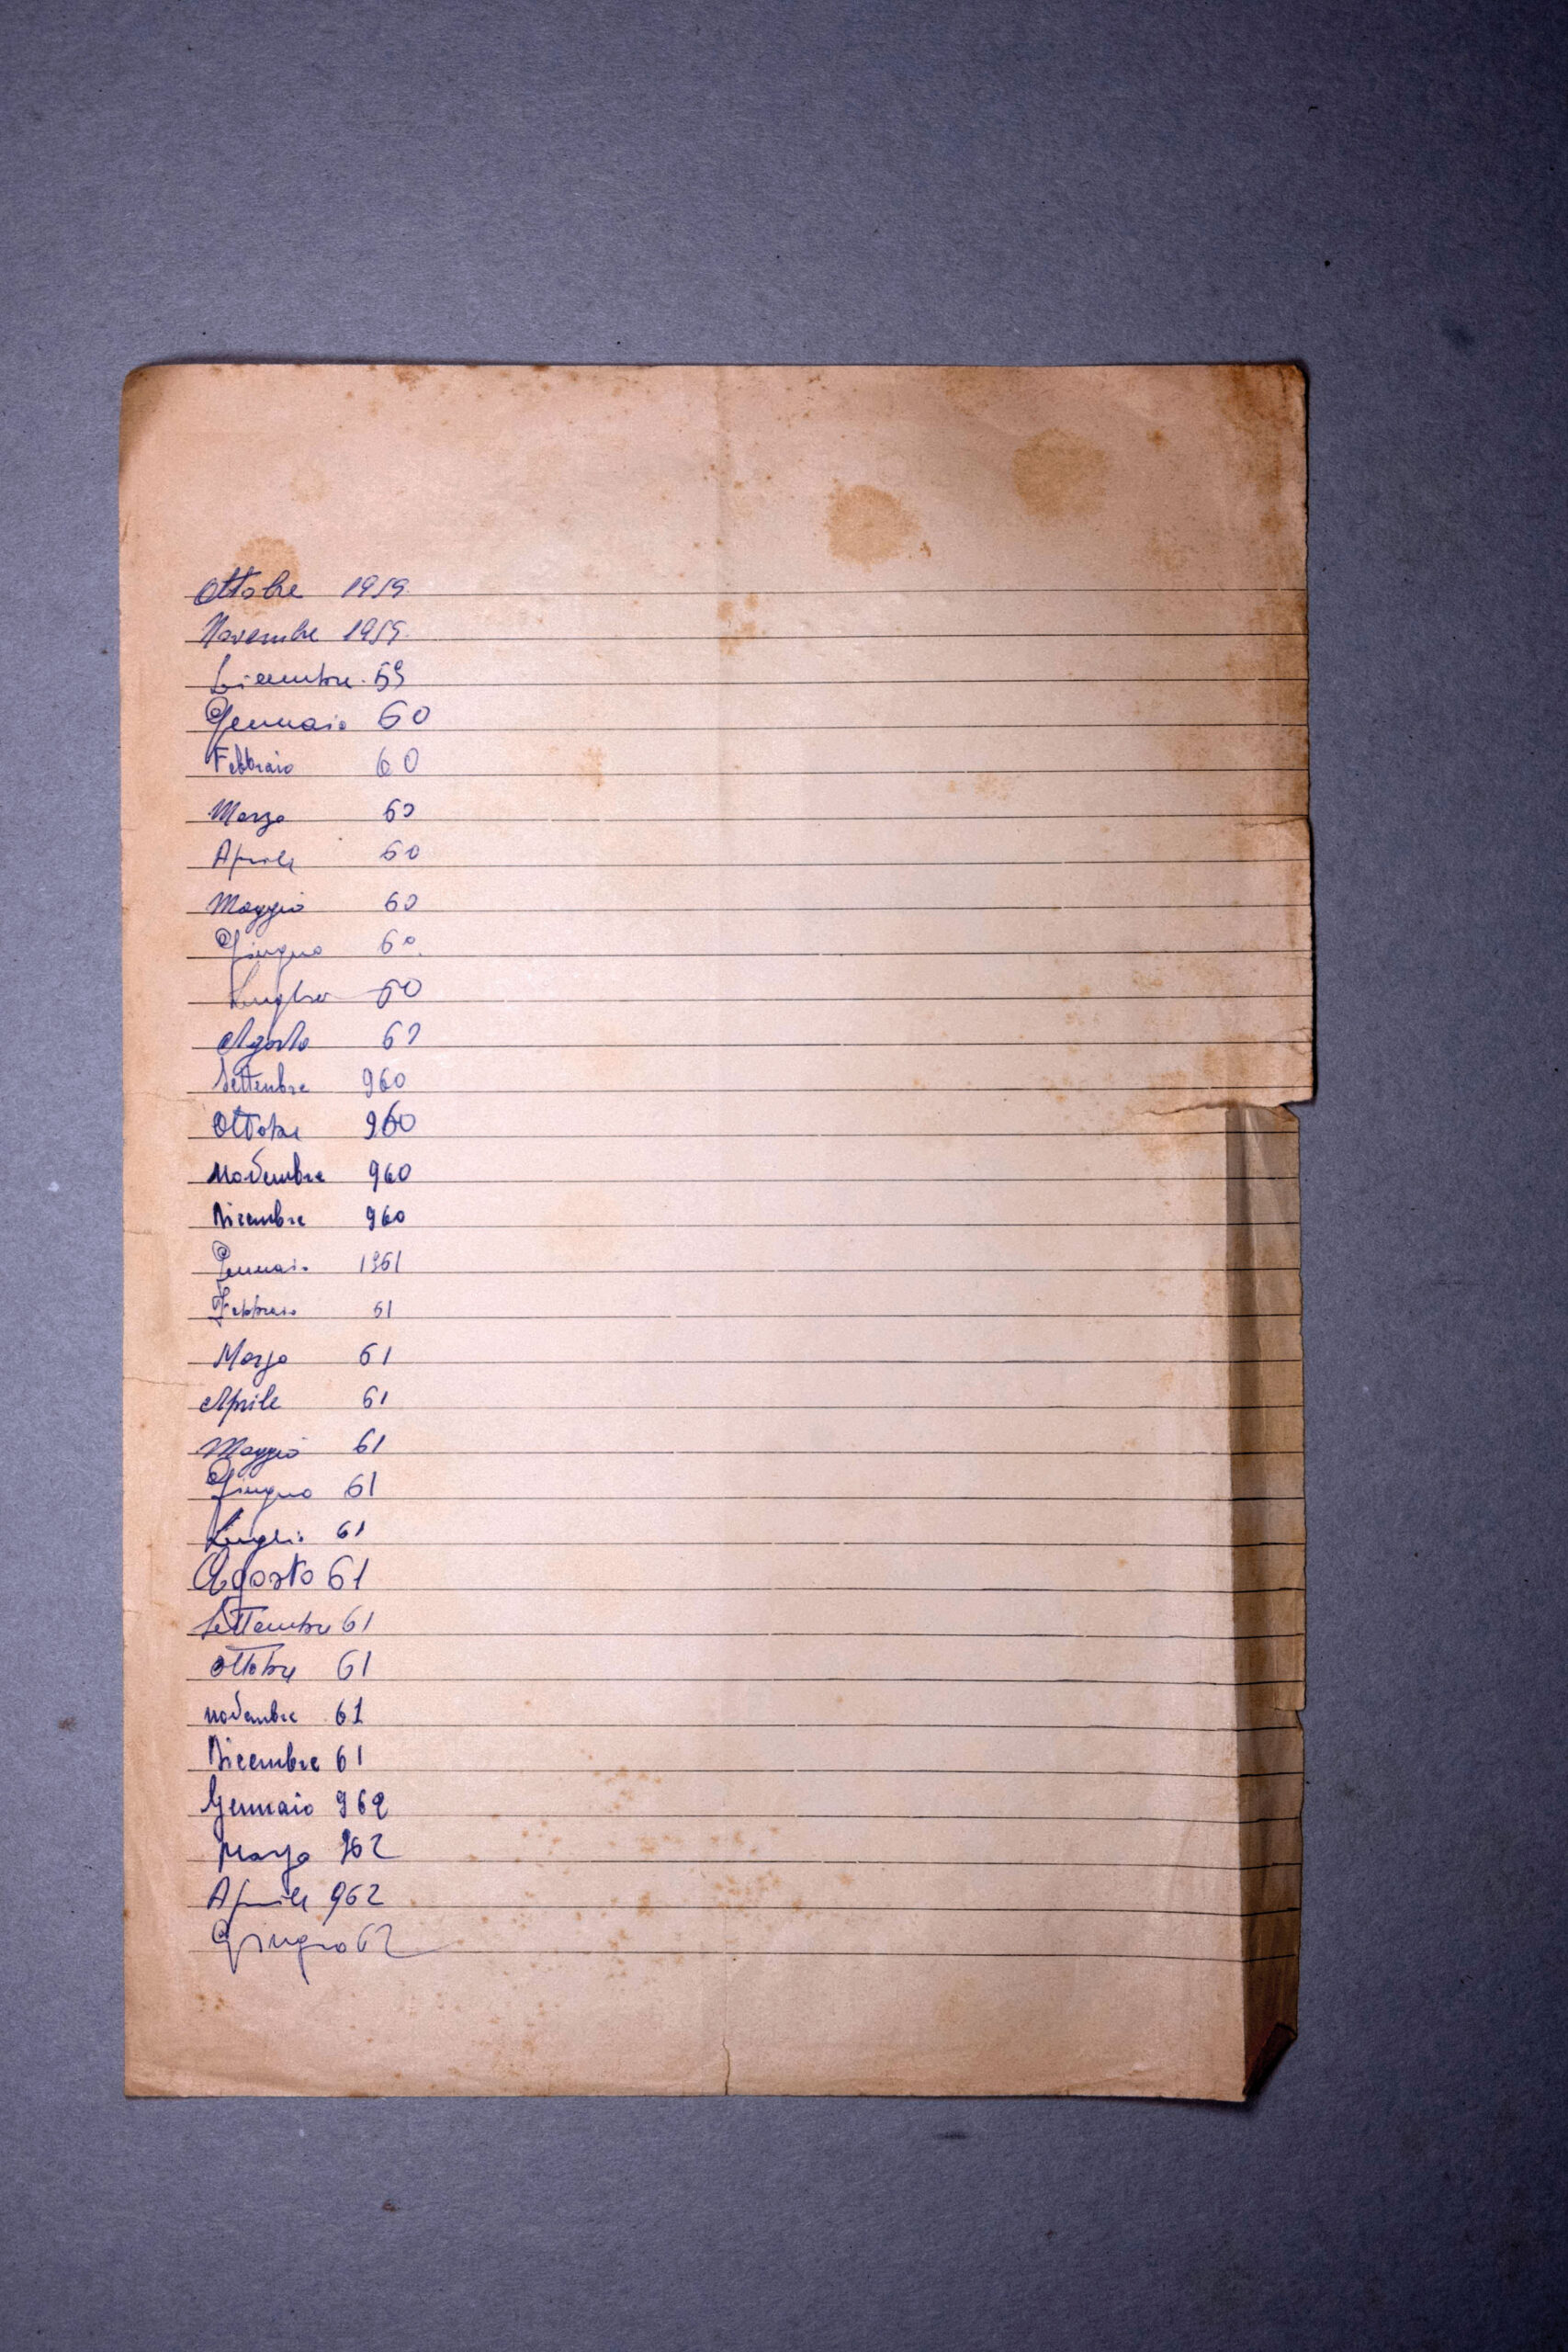 Ottobre 1959
Novembre 1959.
Dicembre. 59
Gennaio 60
Febbraio 60
Marzo 60
Aprile 60
Maggio 60
Giugno 60.
Luglio 60
Agosto 60
Settembre 960
Ottobre 960
Novembre 960
Dicembre 960
Gennaio 1961
Febbraio 61
Marzo 61
Aprile 61
Maggio 61
Giugno 61
Luglio 61
Agosto 61
Settembre 61
Ottobre 61
novembre 61
Dicembre 61
Gennaio 962
Marzo 962
Aprile 962
Giugno 62